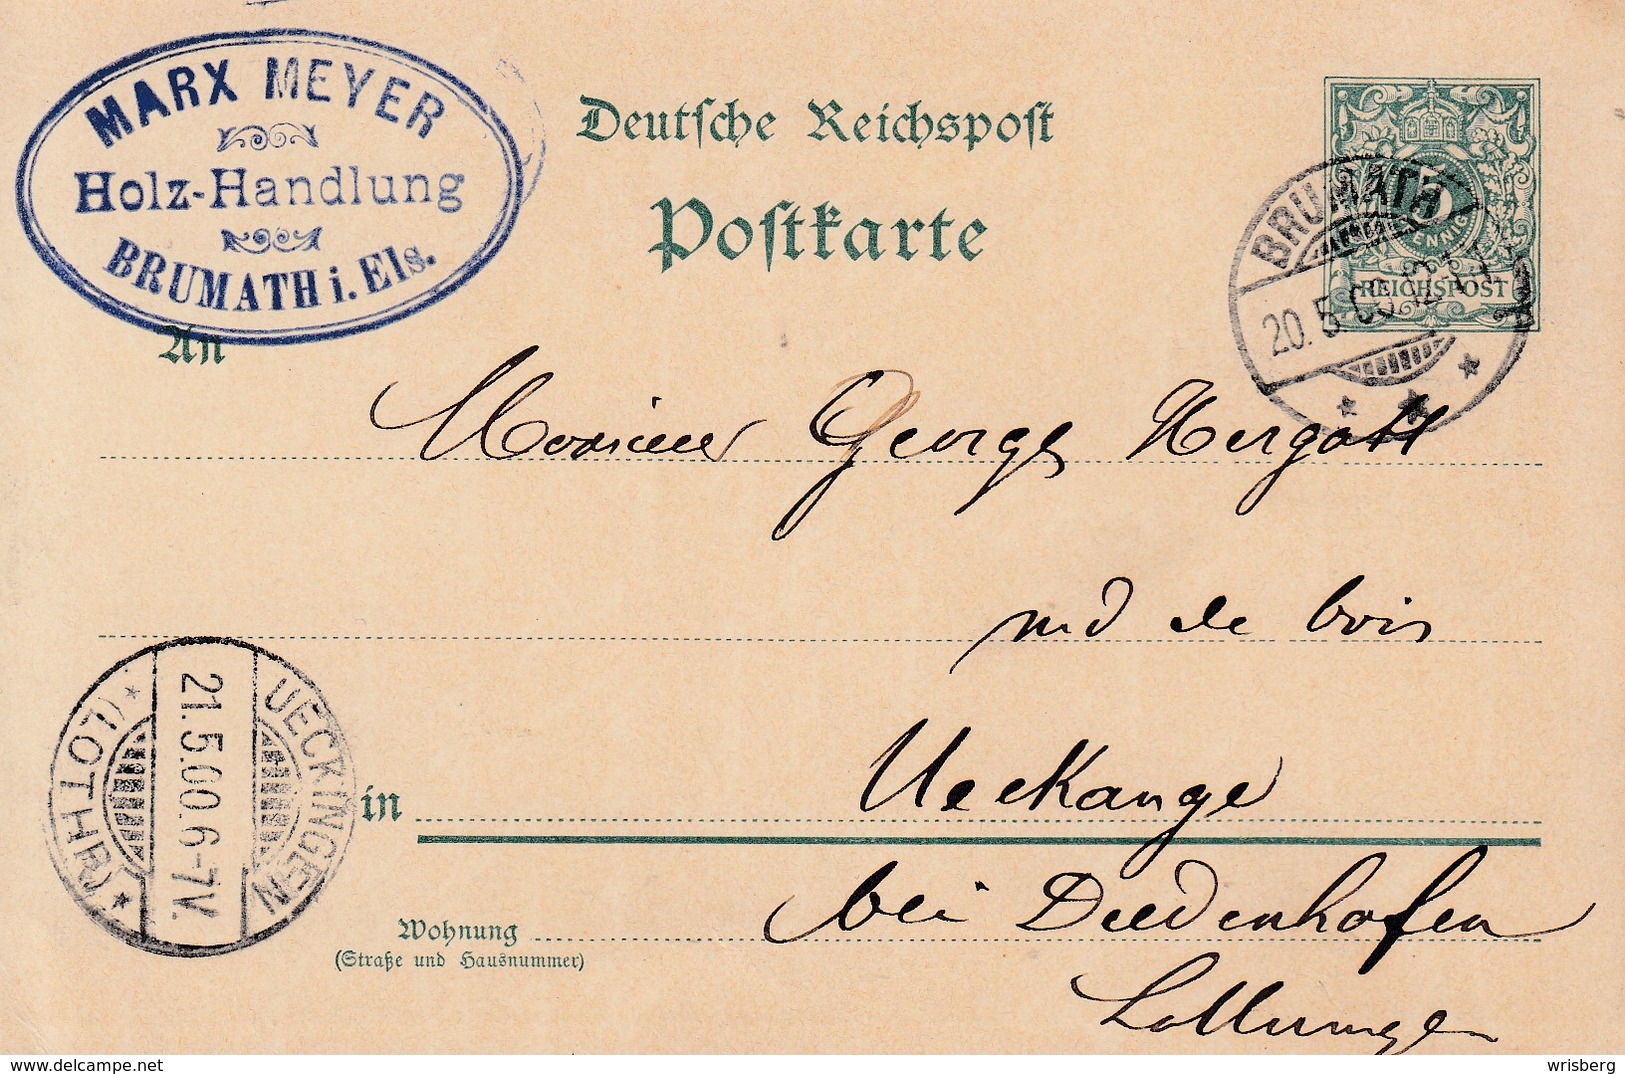 MARX MEYER
Holz-Handlung
BRUMATH i. Els.
Deutsche Reichspost
Postkarte
5
PFENNIG
REICHSPOST
BRUMATH
20. 5. 00. 12-1 N.
An
Monsieur George Hergott
md de bois
in Ueckange
bei Diedenhofen
Wohnung
(Straße und Hausnummer)
Lothringen
UECKINGEN
21.5.00.6-7V.
* (LOTHR.) *
Delcampe.net
wrisberg